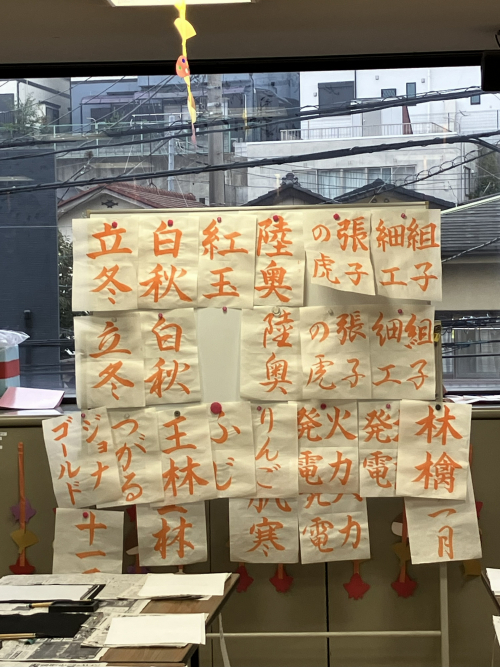 組子細工
張子の虎
陸奥
紅玉
白秋
立冬
組子細工
張子の虎
陸奥
白秋
立冬
林檎
発電
火力発電
りんご
ふじ
王林
つがる
ジョナゴールド
一月
火力発電
肌寒
王林
十一